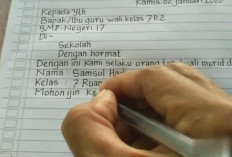 Kamis, 02 Januari 2020
Kepada Yth
Bapak/Ibu guru wali kelas 7R2
SMP Negeri 17
Di-
Sekolah
Dengan hormat
Dengan ini kami selaku orang tua/wali murid d
Nama : Samsul Had
Kelas : 7 Ruan
Mohon ijin Ke